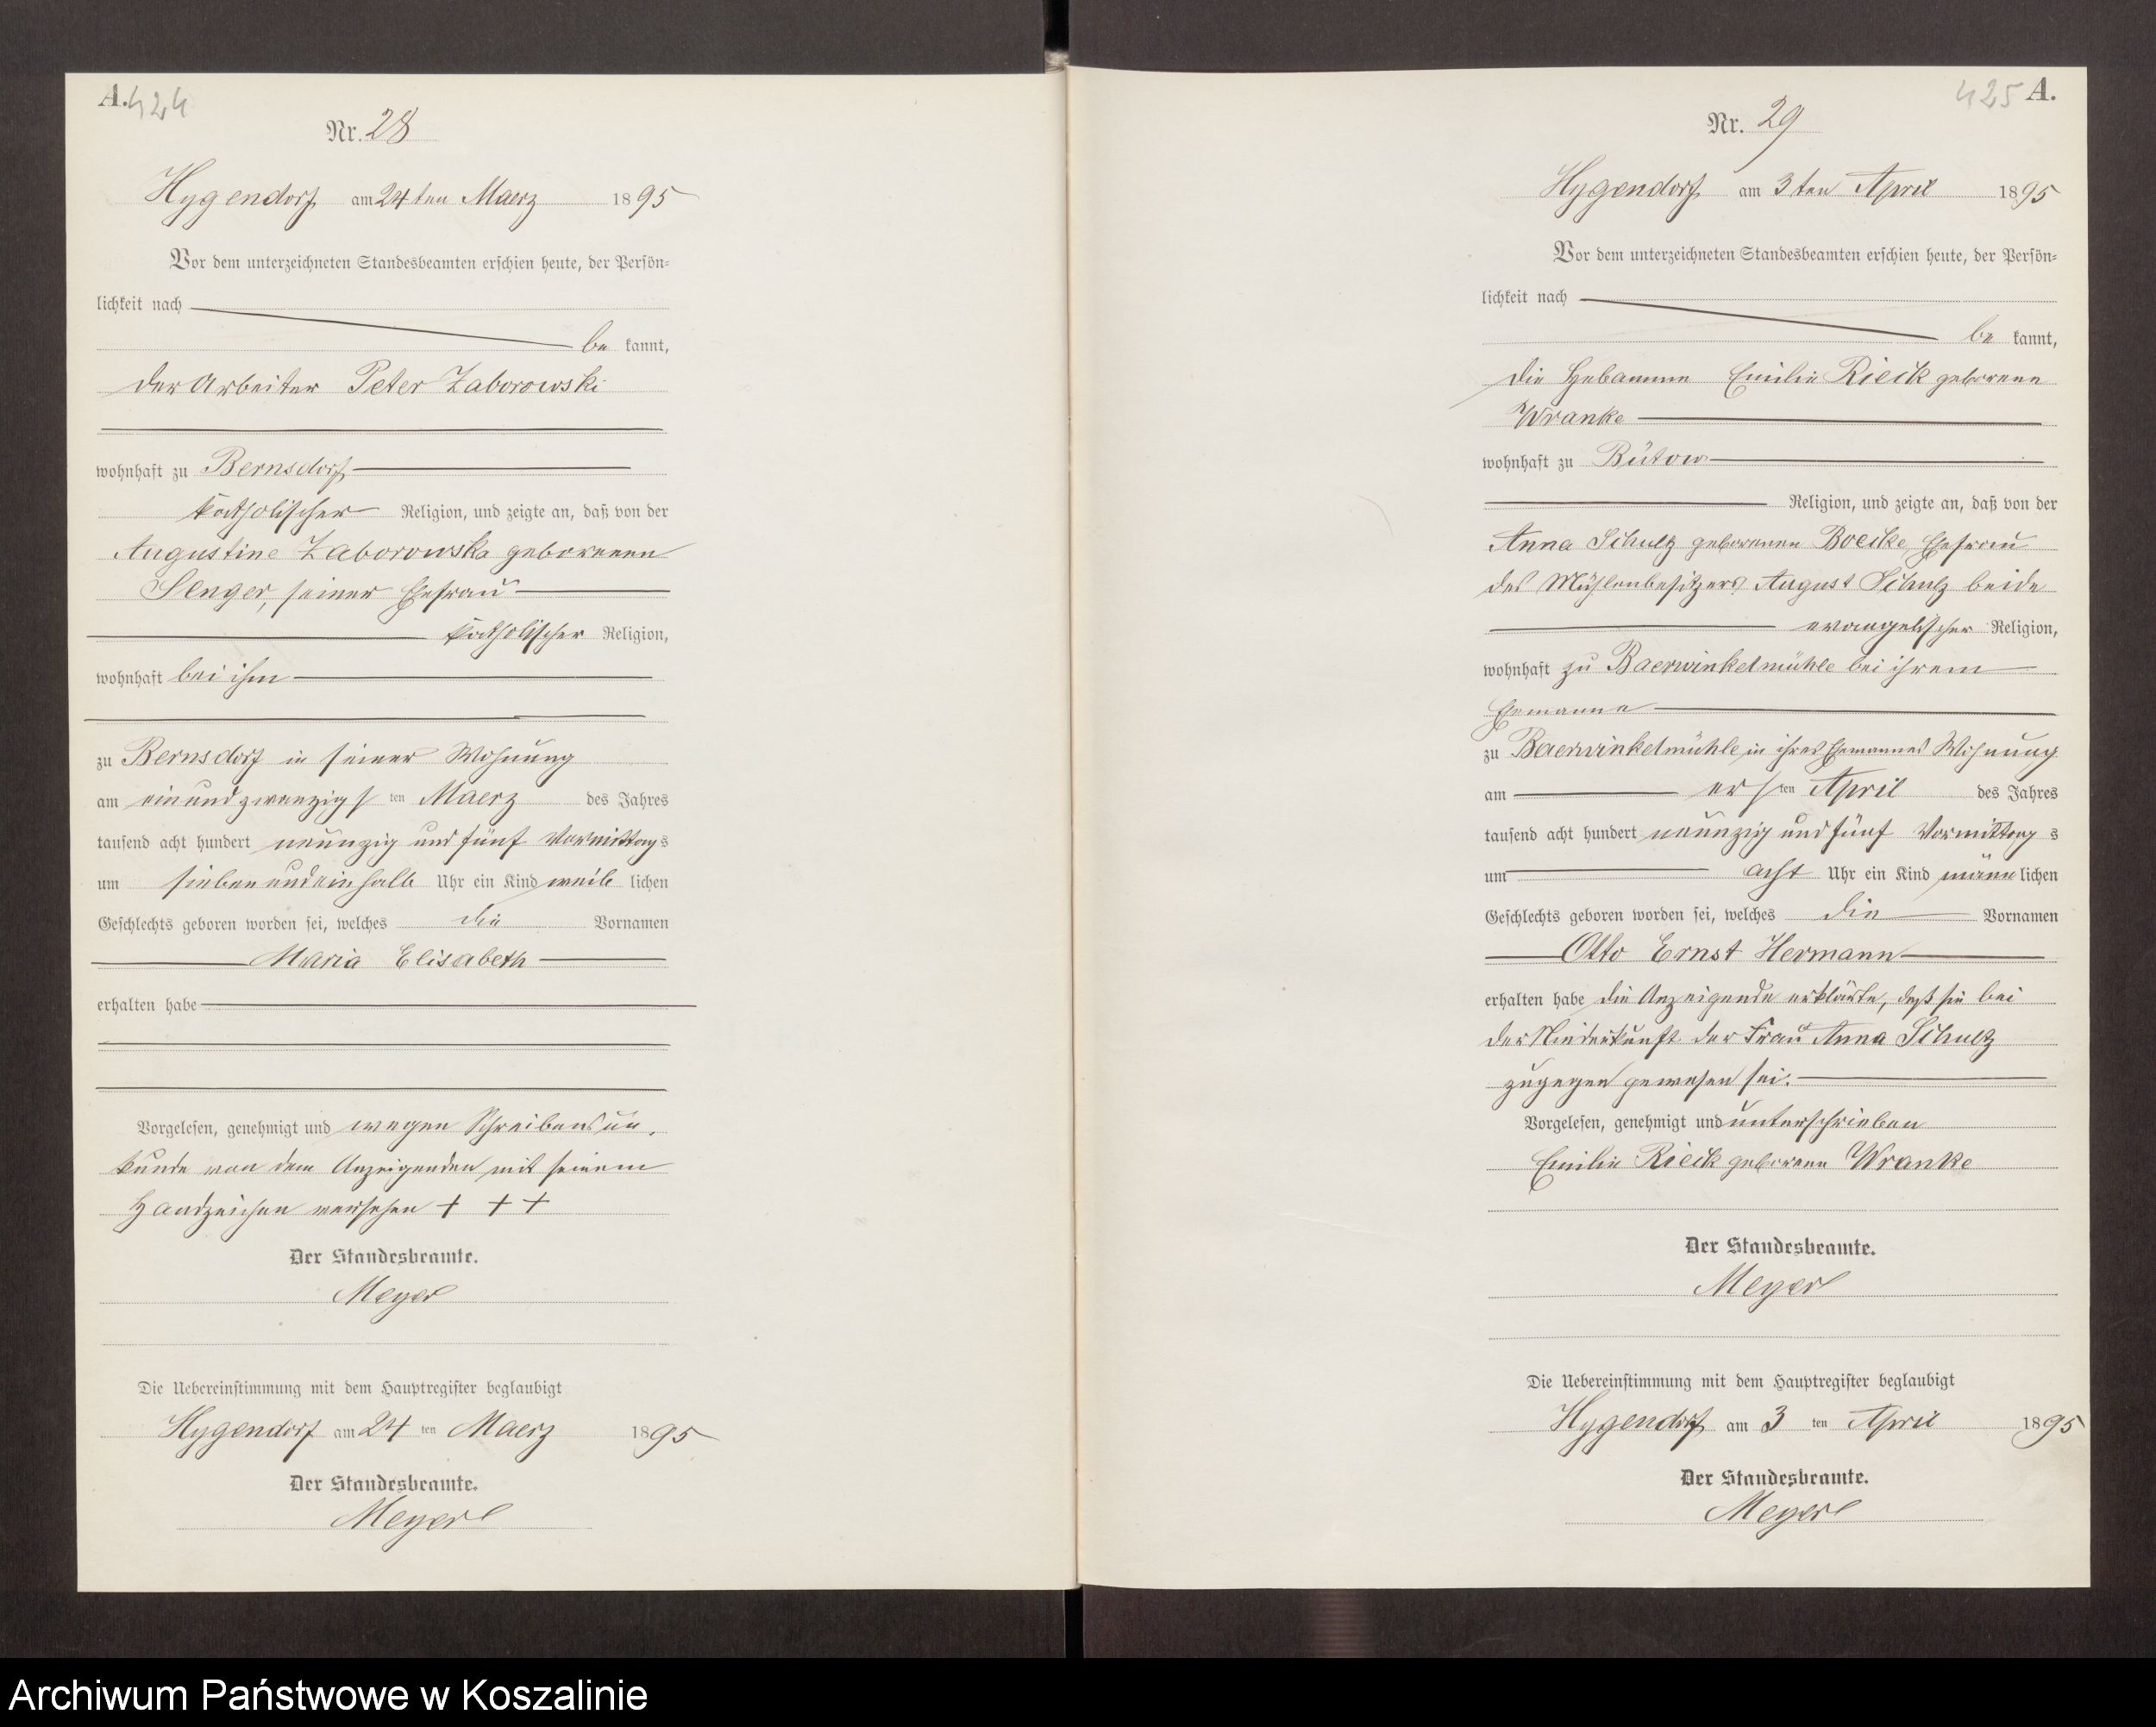 A. 424
Nr. 28
Hygendorf am 24ten Maerz 1895
Vor dem unterzeichneten Standesbeamten erschien heute, der Persön-
lichkeit nach
be kannt,
der Arbeiter Peter Zaborowski
wohnhaft zu Bernsdorf
katholischer Religion, und zeigte an, daß von der
Augustine Zaborowska geborenen
Senger, seiner Ehefrau
katholischer Religion,
wohnhaft bei ihm
zu Bernsdorf in seiner Wohnung
am einundzwanzigsten Maerz des Jahres
tausend acht hundert neunzig und fünf Vormittags
um sieben und ein halb Uhr ein Kind weiblichen
Geschlechts geboren worden sei, welches die Vornamen
Maria Elisabeth
erhalten habe
Vorgelesen, genehmigt und wegen Schreibensun-
kunde von dem Anzeigenden mit seinem
Handzeichen versehen + + +
Der Standesbeamte.
Meyer
Die Uebereinstimmung mit dem Hauptregister beglaubigt
Hygendorf am 24 ten Maerz 1895
Der Standesbeamte.
Meyer
425 A.
Nr. 29
Hygendorf am 3ten April 1895
Vor dem unterzeichneten Standesbeamten erschien heute, der Persön-
lichkeit nach
be kannt,
die Hebamme Emilie Rieck geborene
Wranke
wohnhaft zu Bütow
Religion, und zeigte an, daß von der
Anna Schulz geborenen Boelke, Ehefrau
des Mühlenbesitzers August Schulz beide
evangelischer Religion,
wohnhaft zu Baerwinkelmühle bei ihrem
Ehemanne
zu Baerwinkelmühle in ihres Ehemannes Wohnung
am ersten April des Jahres
tausend acht hundert neunzig und fünf Vormittags
um acht Uhr ein Kind männlichen
Geschlechts geboren worden sei, welches die Vornamen
Otto Ernst Hermann
erhalten habe die Anzeigende erklärte, daß sie bei
der Niederkunft der Frau Anna Schulz
zugegen gewesen sei.
Vorgelesen, genehmigt und unterschrieben
Emilie Rieck geborene Wranke
Der Standesbeamte.
Meyer
Die Uebereinstimmung mit dem Hauptregister beglaubigt
Hygendorf am 3 ten April 1895
Der Standesbeamte.
Meyer
Archiwum Państwowe w Koszalinie